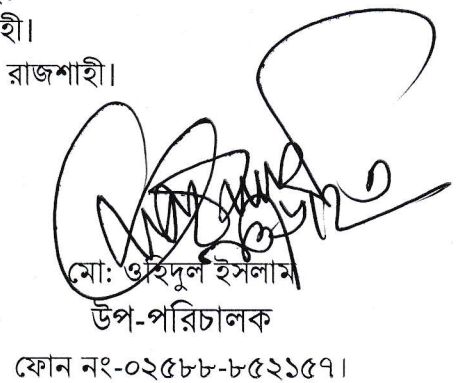 হী।
রাজশাহী।
মো: ওহিদুল ইসলাম
উপ-পরিচালক
ফোন নং-০২৫৮৮-৮৫২১৫৭।